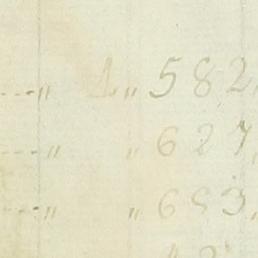 ...." 1" 582"
...." " 627"
...." " 653"